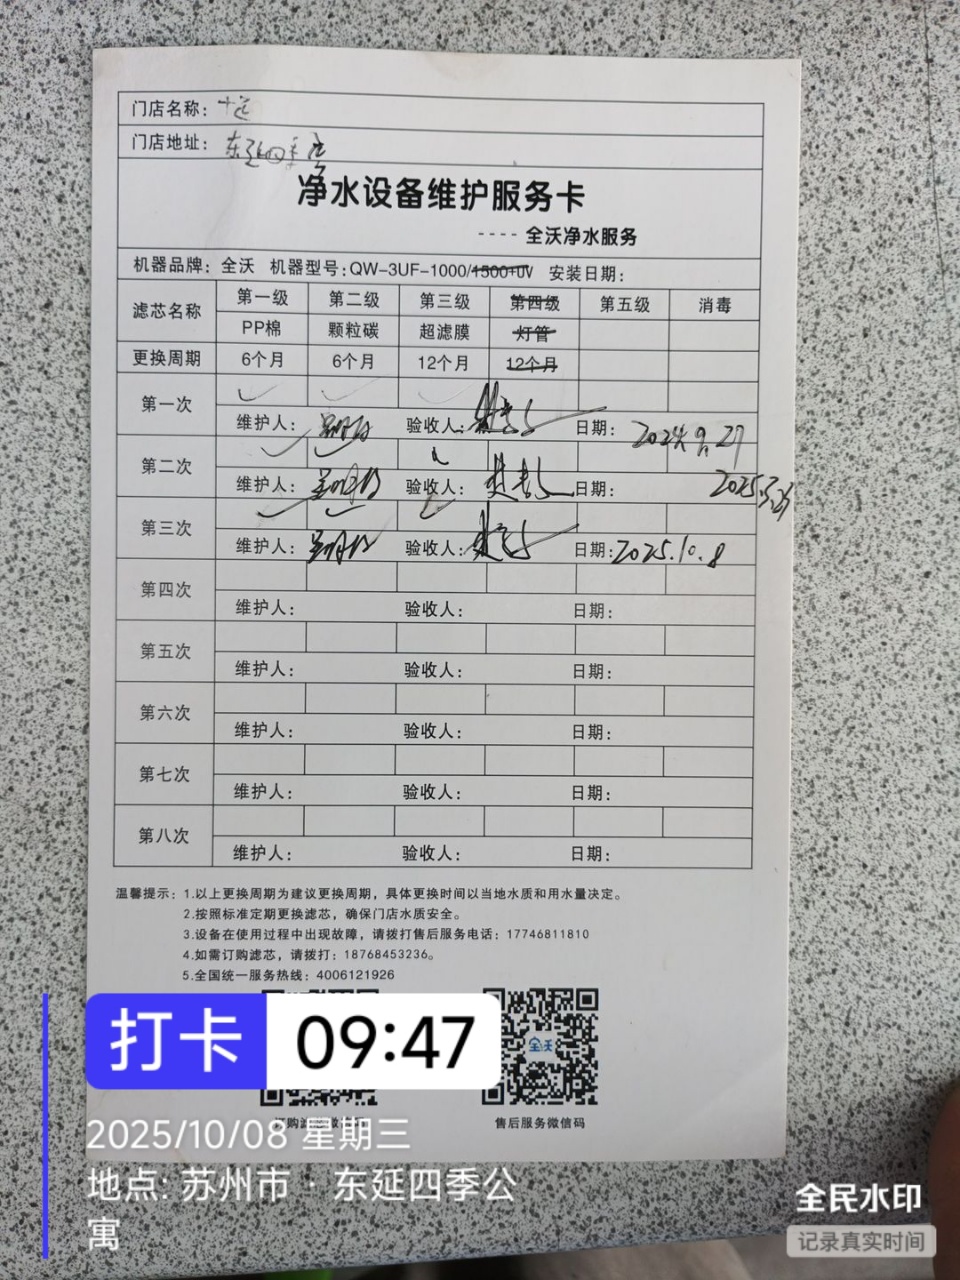 门店名称：
门店地址：东延四季店
净水设备维护服务卡
---- 全沃净水服务
机器品牌：全沃 机器型号:QW-3UF-1000/1500+UV 安装日期：
滤芯名称 第一级 第二级 第三级 第四级 第五级 消毒
PP棉 颗粒碳 超滤膜 灯管
更换周期 6个月 6个月 12个月 12个月
第一次
维护人： 验收人： 日期： 2024.9.27
第二次
维护人： 验收人： 日期：
第三次
维护人： 验收人： 日期：2025.10.8
第四次
维护人： 验收人： 日期：
第五次
维护人： 验收人： 日期：
第六次
维护人： 验收人： 日期：
第七次
维护人： 验收人： 日期：
第八次
维护人： 验收人： 日期：
温馨提示：1.以上更换周期为建议更换周期，具体更换时间以当地水质和用水量决定。
2.按照标准定期更换滤芯，确保门店水质安全。
3.设备在使用过程中出现故障，请拨打售后服务电话：17746811810
4.如需订购滤芯，请拨打：18768453236。
5.全国统一服务热线：4006121926
全沃
售后服务微信码
打卡 09:47
2025/10/08 星期三
地点: 苏州市 · 东延四季公
寓
全民水印
记录真实时间